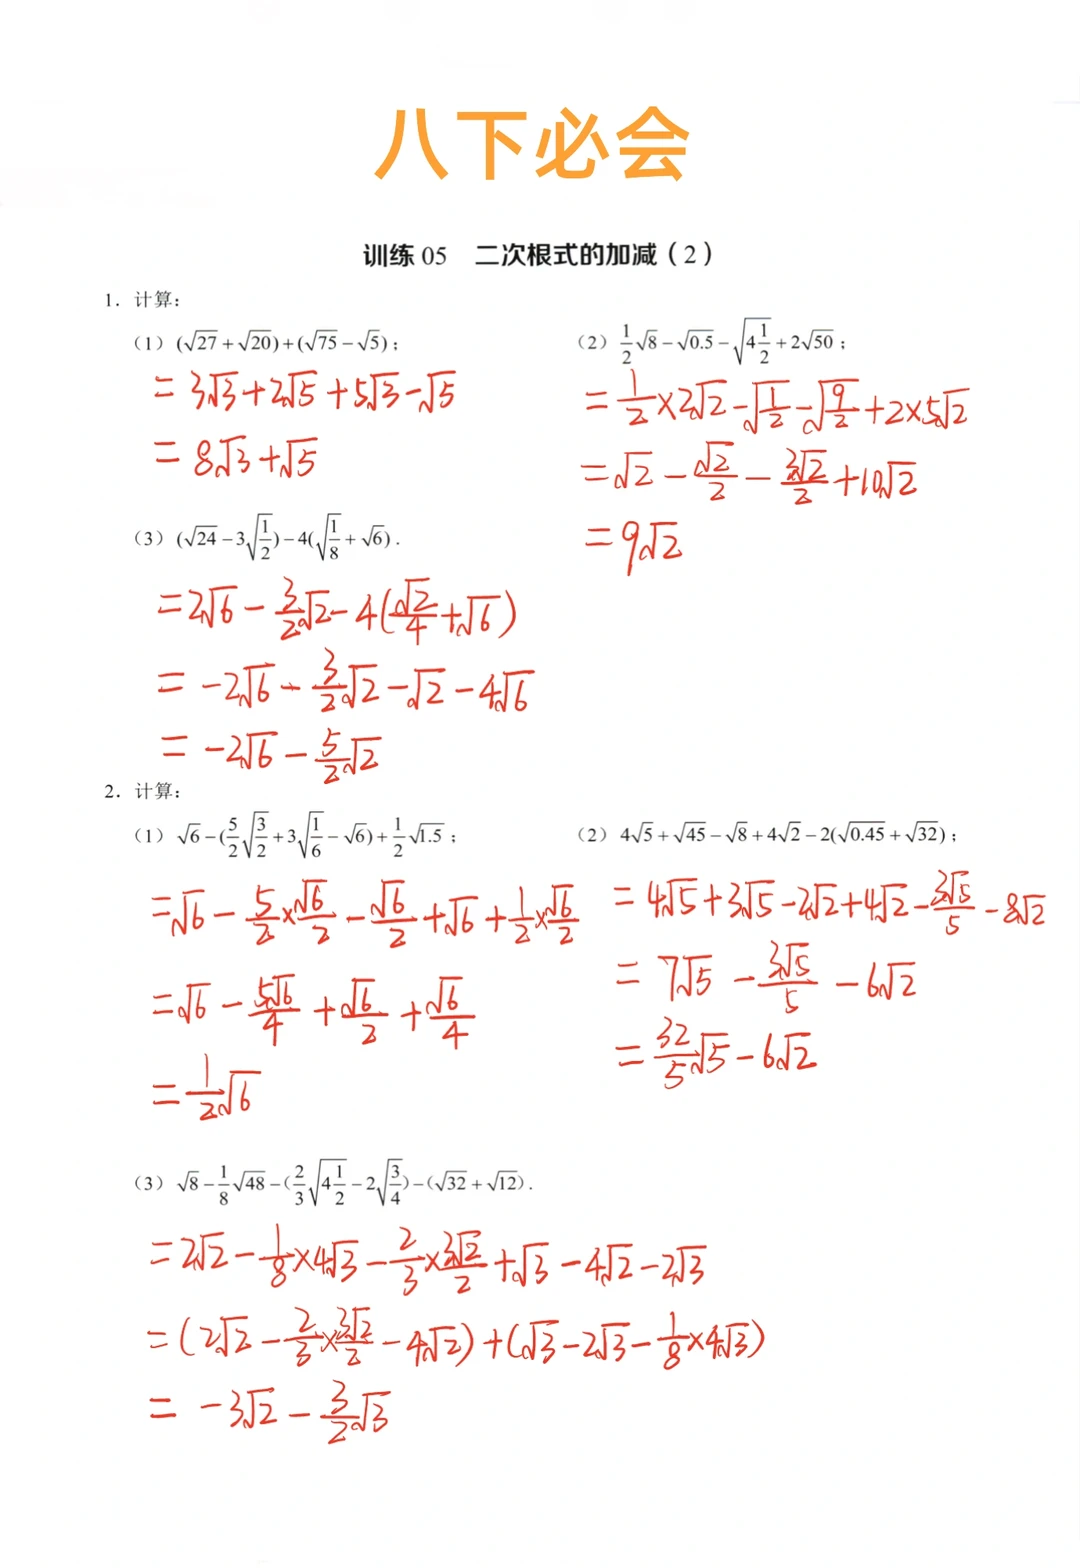 八下必会
训练 05 二次根式的加减（2）
1．计算：
（1）(√27+√20)+(√75−√5)；
=3√3+2√5+5√3-√5
=8√3+√5
（2）1/2√8−√0.5−√(4 1/2)+2√50；
=1/2×2√2-√(1/2)-√(9/2)+2×5√2
=√2-√2/2-3√2/2+10√2
=9√2
（3）(√24−3√(1/2))−4(√(1/8)+√6)．
=2√6-3/2√2-4(√2/4+√6)
=-2√6-3/2√2-√2-4√6
=-2√6-5/2√2
2．计算：
（1）√6−(5/2√(3/2)+3√(1/6)−√6)+1/2√1.5；
=√6-5/2×√6/2-√6/2+√6+1/2×√6/2
=√6-5√6/4+√6/2+√6/4
=1/2√6
（2）4√5+√45−√8+4√2−2(√0.45+√32)；
=4√5+3√5-2√2+4√2-3√5/5-8√2
=7√5-3√5/5-6√2
=32/5√5-6√2
（3）√8−1/8√48−(2/3√(4 1/2)−2√(3/4))−(√32+√12)．
=2√2-1/8×4√3-2/3×3√2/2+√3-4√2-2√3
=(2√2-2/3×3√2/2-4√2)+(√3-2√3-1/8×4√3)
=-3√2-3/2√3